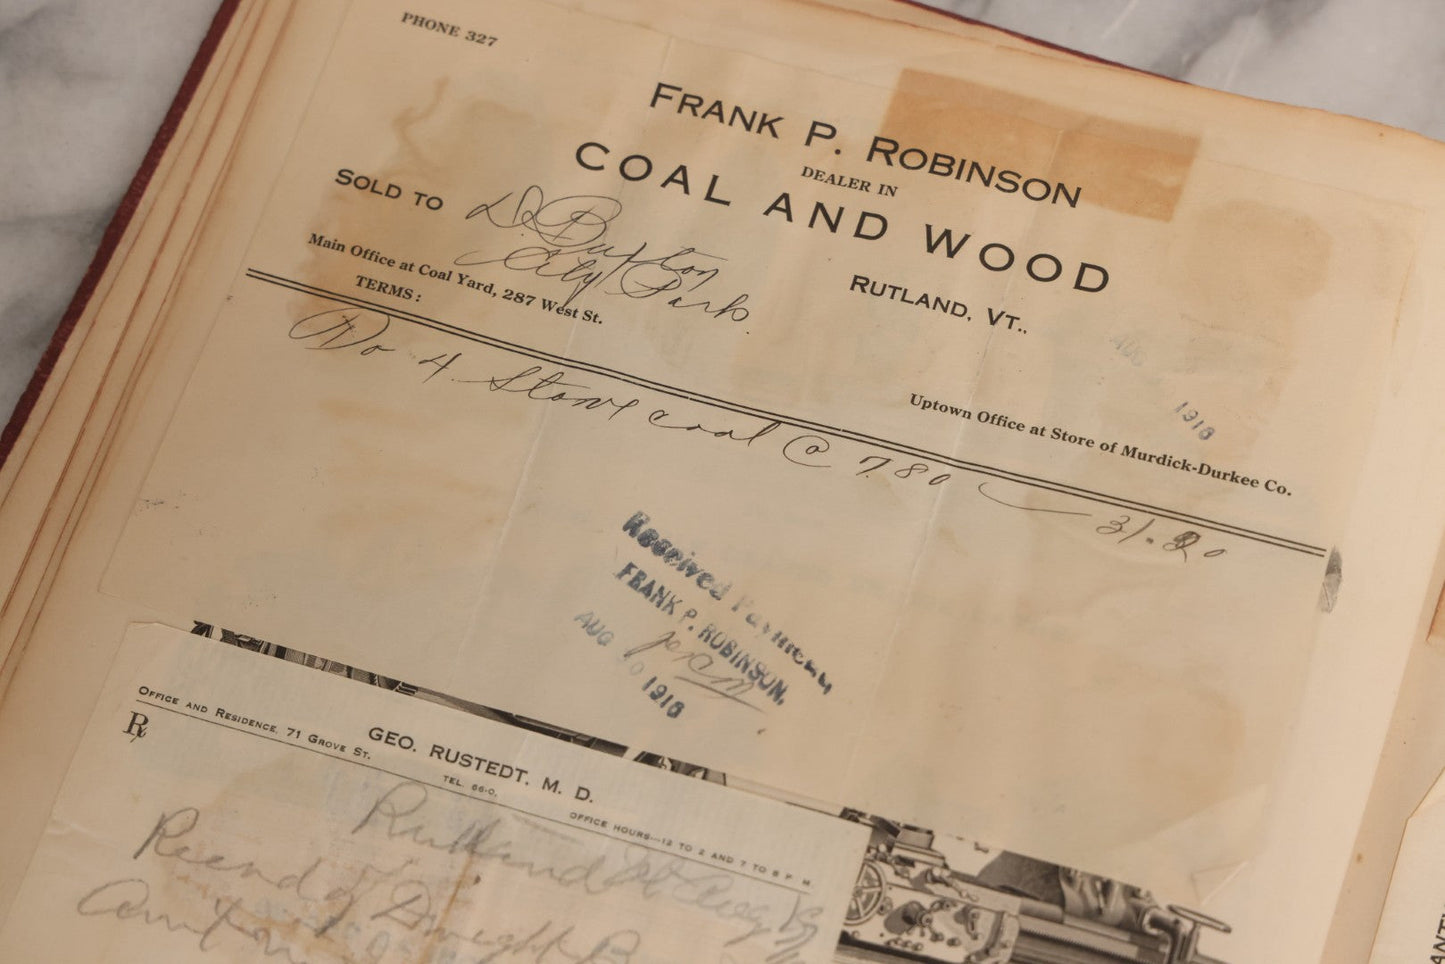 PHONE 327
FRANK P. ROBINSON
DEALER IN
COAL AND WOOD
SOLD TO D. Buxton
City Park.
RUTLAND, VT.,
AUG 1916
Main Office at Coal Yard, 287 West St.
Uptown Office at Store of Murdick-Durkee Co.
TERMS:
No 4 Stove coal @ 7.80 31.20
Received Payment
FRANK P. ROBINSON,
AUG 1916
GEO. RUSTEDT, M. D.
OFFICE AND RESIDENCE, 71 GROVE ST.
TEL. 66-
OFFICE HOURS—12 TO 2 AND 7 TO 8 P M
℞
Rutland Vt Aug
Recd of Dwight B
Amt